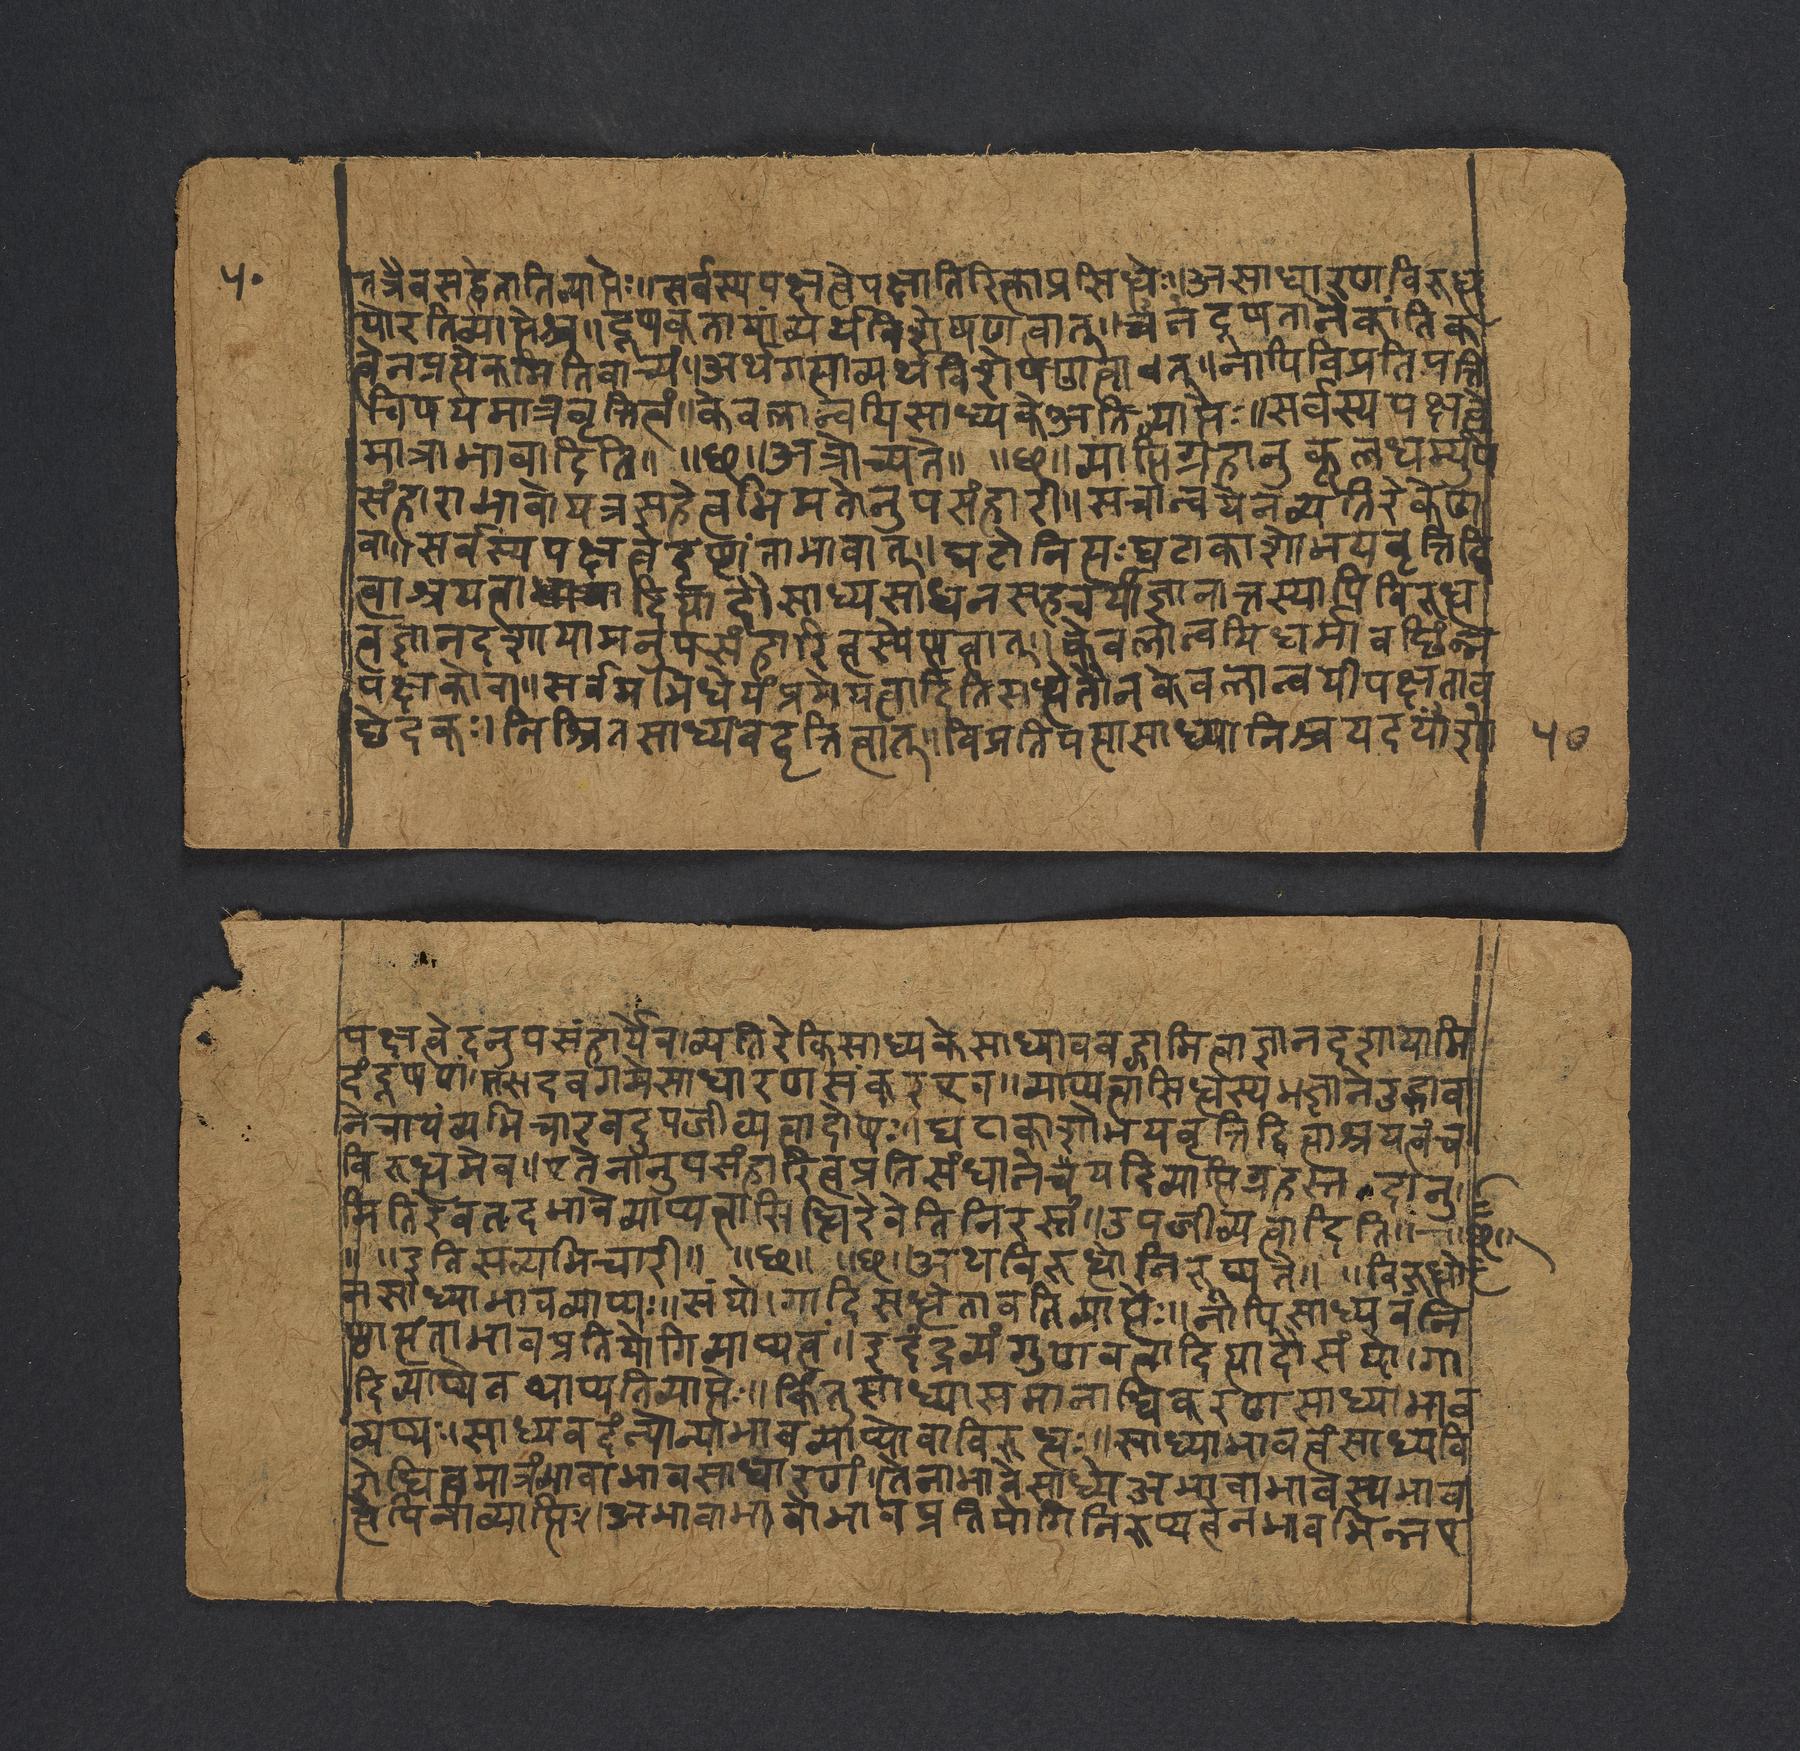 ५०
तत्रैवसद्धेतातिव्याप्तेः॥सर्वस्यपक्षत्वेपक्षातिरिक्ताप्रसिध्धेः॥असाधारणविरूध्ध
योरतिव्याप्तेश्च॥दूषकतायांव्यर्थविशेषणत्वात्॥चनदूषतानेकांतिक
त्वेनप्रत्येकमितिवाच्यं॥अर्थगत्याव्यर्थविशेषणत्वावत्॥नापिविप्रतिपत्ति
विषयमात्रवृत्तित्वं॥केवलान्वयिसाध्यकेअतिव्याप्तेः॥सर्वस्यपक्षत्वे
मात्राभावादिति॥ ॥छ॥अत्रोच्यते॥ ॥छ॥व्याप्तिग्रहानुकूलधर्म्युप
संहाराभावोयत्रसहेत्वभिमतोनुपसंहारी॥सचान्वयेनव्यतिरेकेण
वा॥सर्वस्यपक्षत्वेदृष्टांताभावात्॥घटोनित्यःघटाकाशोभयवृत्तिद्वि
त्वाश्रयत्वादित्यादौसाध्यसाधनसहचर्याज्ञानात्तस्यापिविरुध्ध
त्वज्ञानदशायामनुपसंहारित्वस्येष्टत्वात्॥केवलान्वयिधर्मावछिन्न
पक्षकोवा॥सर्वमभिधेयंप्रमेयत्वादितिसध्धेतौनकेवलान्वयीपक्षताव
छेदकः॥निश्चितसाध्यवद्वृत्तित्वात्॥विप्रतिपत्त्यासाध्यानिश्चयदयांशे
५०
पक्षत्वेदनुपसंहार्यैव।व्यतिरेकिसाध्यकेसाध्याववद्गामित्वाज्ञानदृशायामि
दंदूषणं॥तत्सदवगमेसाधारणसंकरएव॥व्याप्यत्वासिध्धिस्यमज्ञानेउद्भाव
नेचायंव्यभिचारवदुपजीव्यत्वाद्दोषः॥घटाकाशोभयवृत्तिद्वित्वाश्रयत्वंच
विरुध्धमेव॥एतेनानुपसंहारित्वप्रतिसंधानेचैयदिव्याप्तिग्रहस्तदानु
मितिरेवतदभावेव्याप्यत्वासिध्धिरेवेतिनिरस्तं॥उपजीव्यत्वादिति॥ ॥छ॥
॥ ॥इतिसव्यभिचारी॥ ॥छ॥ ॥छ॥अथविरूध्धोनिरूप्यते॥ ॥विरूध्धो
नसाध्याभावव्याप्यः॥संयोगादिसध्धेतावतिव्याप्तेः॥नापिसाध्यवनि
ष्ठात्यंताभावप्रतियोगिव्याप्यत्वं॥इदंद्रव्यंगुणवत्वादित्यादौसंयोगा
दिव्याप्येनव्याप्यतिव्याप्तेः॥किंतुसाध्यासमानाधिकरणसाध्याभाव
व्याप्यः॥साध्यवदंन्योन्याभावव्याप्योवाविरूध्धः॥साध्याभावत्वंसाध्यवि
रोधित्वमात्रंभावाभावसाधारणं॥तेनाभावेसाध्येअभावाभावस्यभाव
त्वेपिनाव्याप्तिः॥अभावाभावोभावप्रतियोगिनिरूप्यत्वेनभावभिन्नए